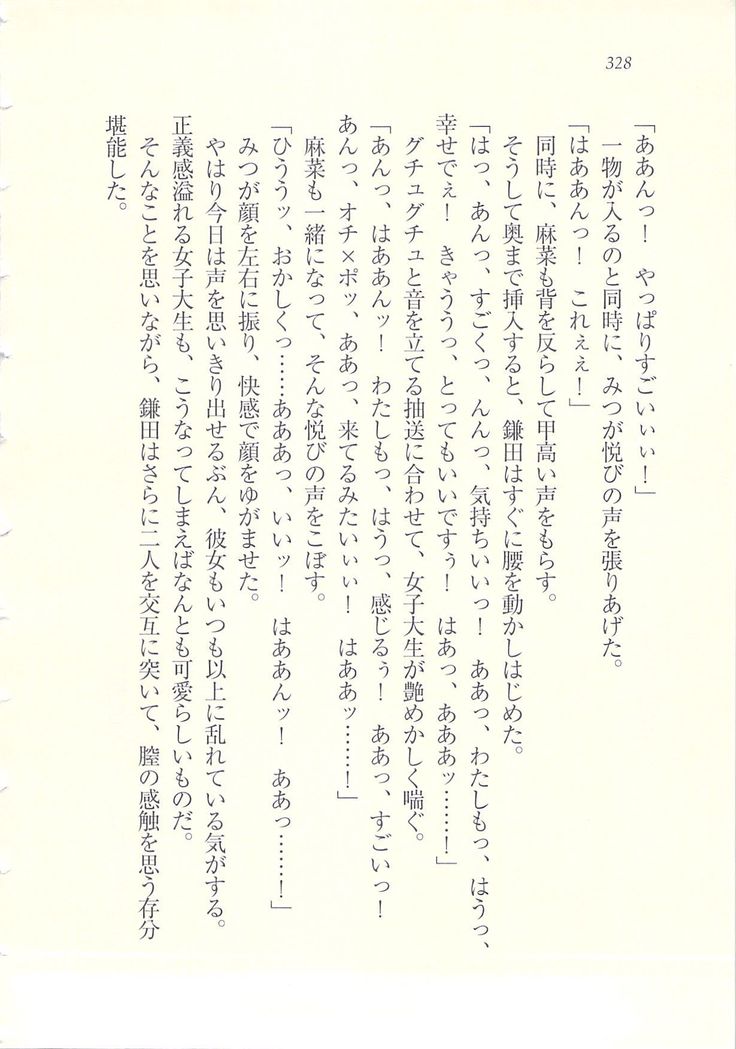 328
「ああんっ！　やっぱりすごいぃぃ！」
　一物が入るのと同時に、みつが悦びの声を張りあげた。
「はああんっ！　これぇぇ！」
　同時に、麻菜も背を反らして甲高い声をもらす。
　そうして奥まで挿入すると、鎌田はすぐに腰を動かしはじめた。
「はっ、あんっ、すごくっ、んんっ、気持ちいいっ！　ああっ、わたしもっ、はうっ、
幸せでぇ！　きゃううっ、とってもいいですぅ！　はあっ、あああッ……！」
　グチュグチュと音を立てる抽送に合わせて、女子大生が艶めかしく喘ぐ。
「あんっ、はああんッ！　わたしもっ、はうっ、感じるぅ！　ああっ、すごいっ！
あんっ、オチ×ポッ、ああっ、来てるみたいぃぃ！　はああッ……！」
　麻菜も一緒になって、そんな悦びの声をこぼす。
「ひううッ、おかしくっ……あああっ、いいッ！　はああんッ！　ああっ……！」
　みつが顔を左右に振り、快感で顔をゆがませた。
　やはり今日は声を思いきり出せるぶん、彼女もいつも以上に乱れている気がする。
正義感溢れる女子大生も、こうなってしまえばなんとも可愛らしいものだ。
　そんなことを思いながら、鎌田はさらに二人を交互に突いて、膣の感触を思う存分
堪能した。